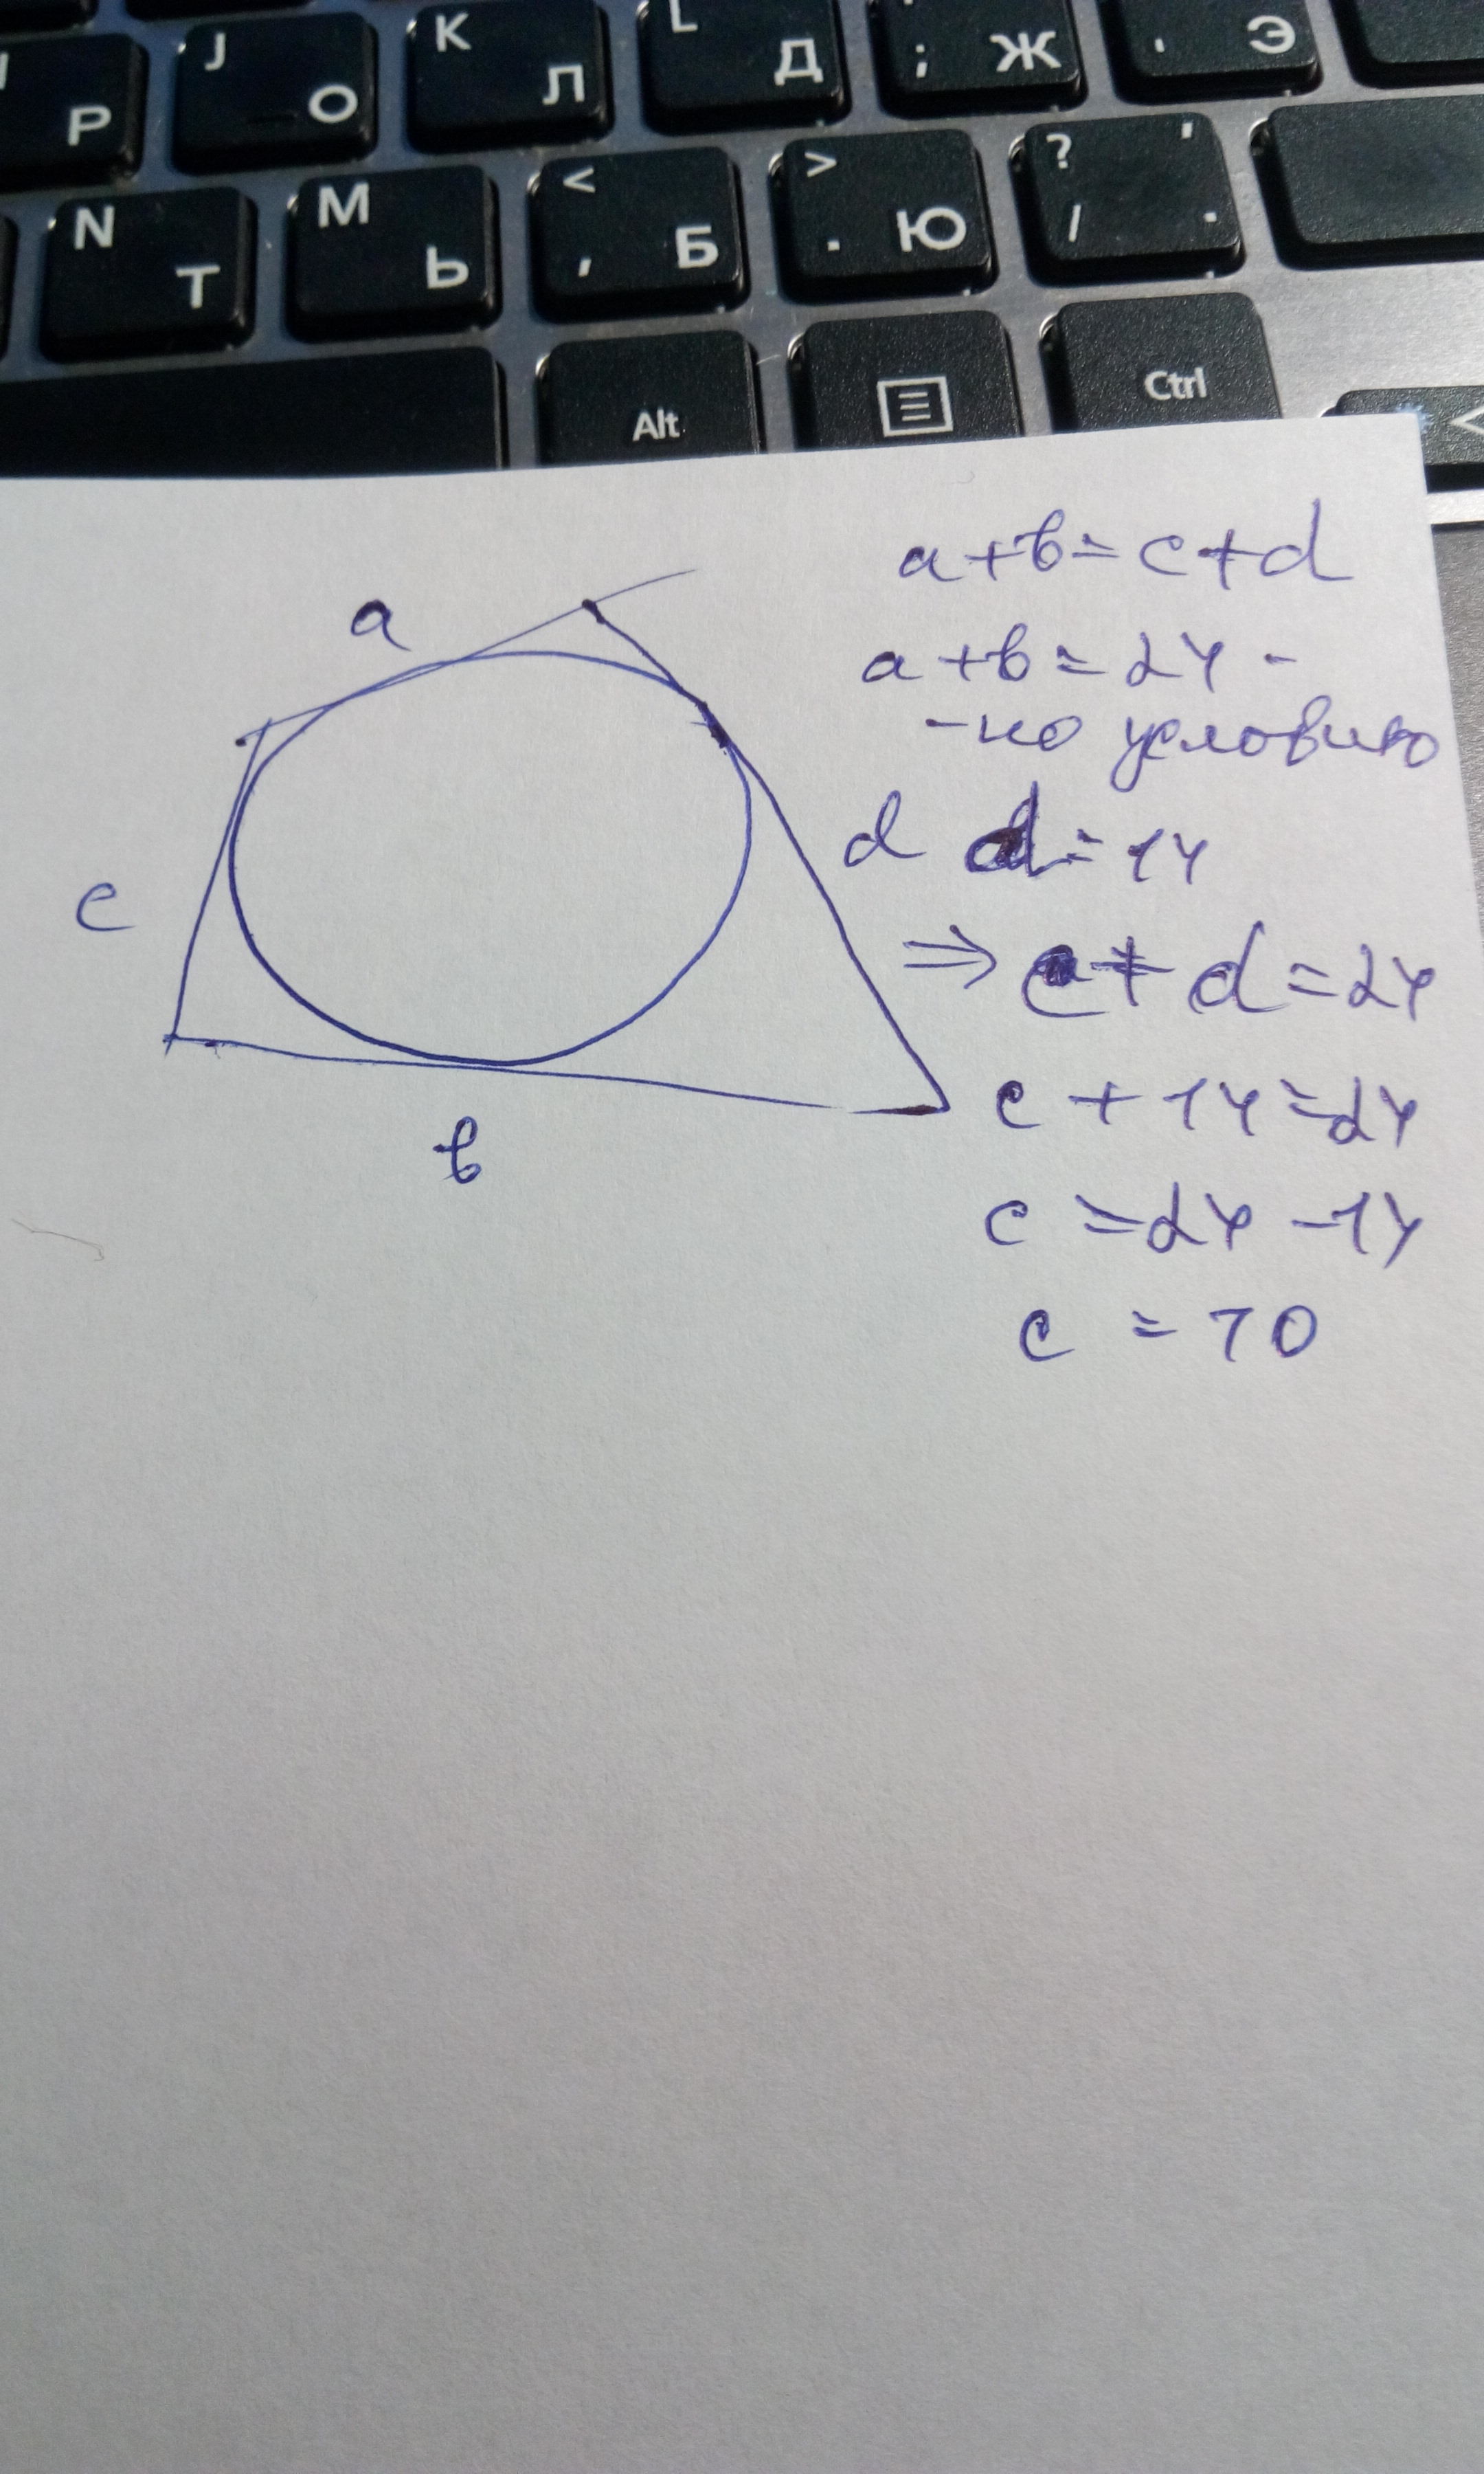 J О K Л L Д ; Ж ' Э
Р
N Т M Ь < , Б > . Ю ? / ' .
Alt Ctrl <
a
c
d
в
a+в=c+d
a+в=24-
-по условию
d=14
⇒ c+d=24
c+14=24
c=24-14
c=10